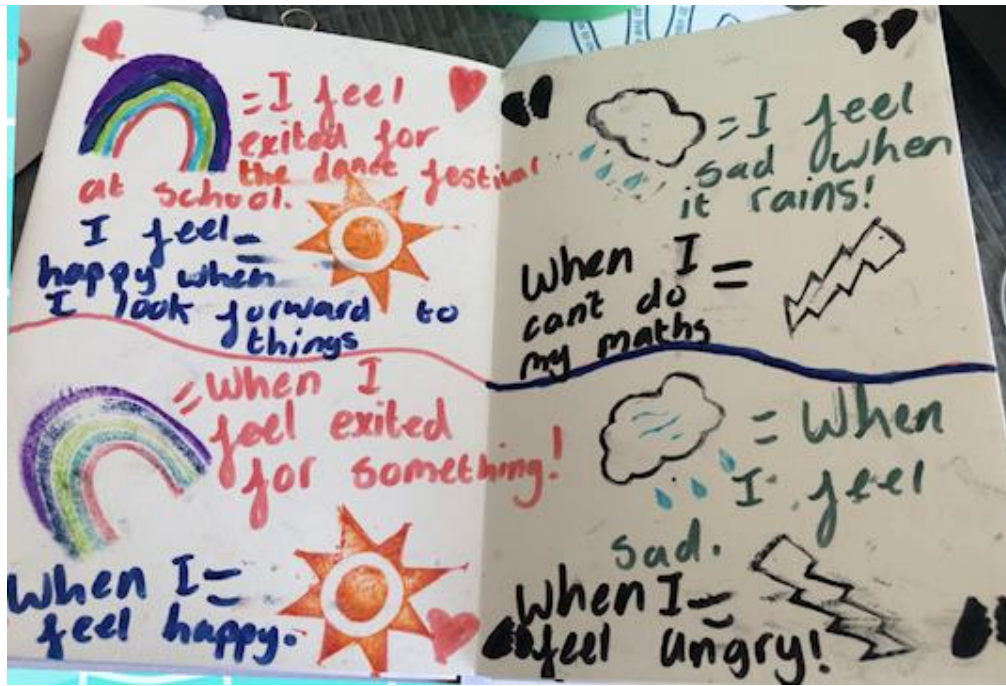 = I feel
exited for
the dance festival
at school.
I feel =
happy when
I look forward to
things
= When I
feel exited
for something!
When I =
feel happy.
= I feel
sad when
it rains!
When I =
can't do
my maths
= When
I feel
sad.
When I =
feel angry!